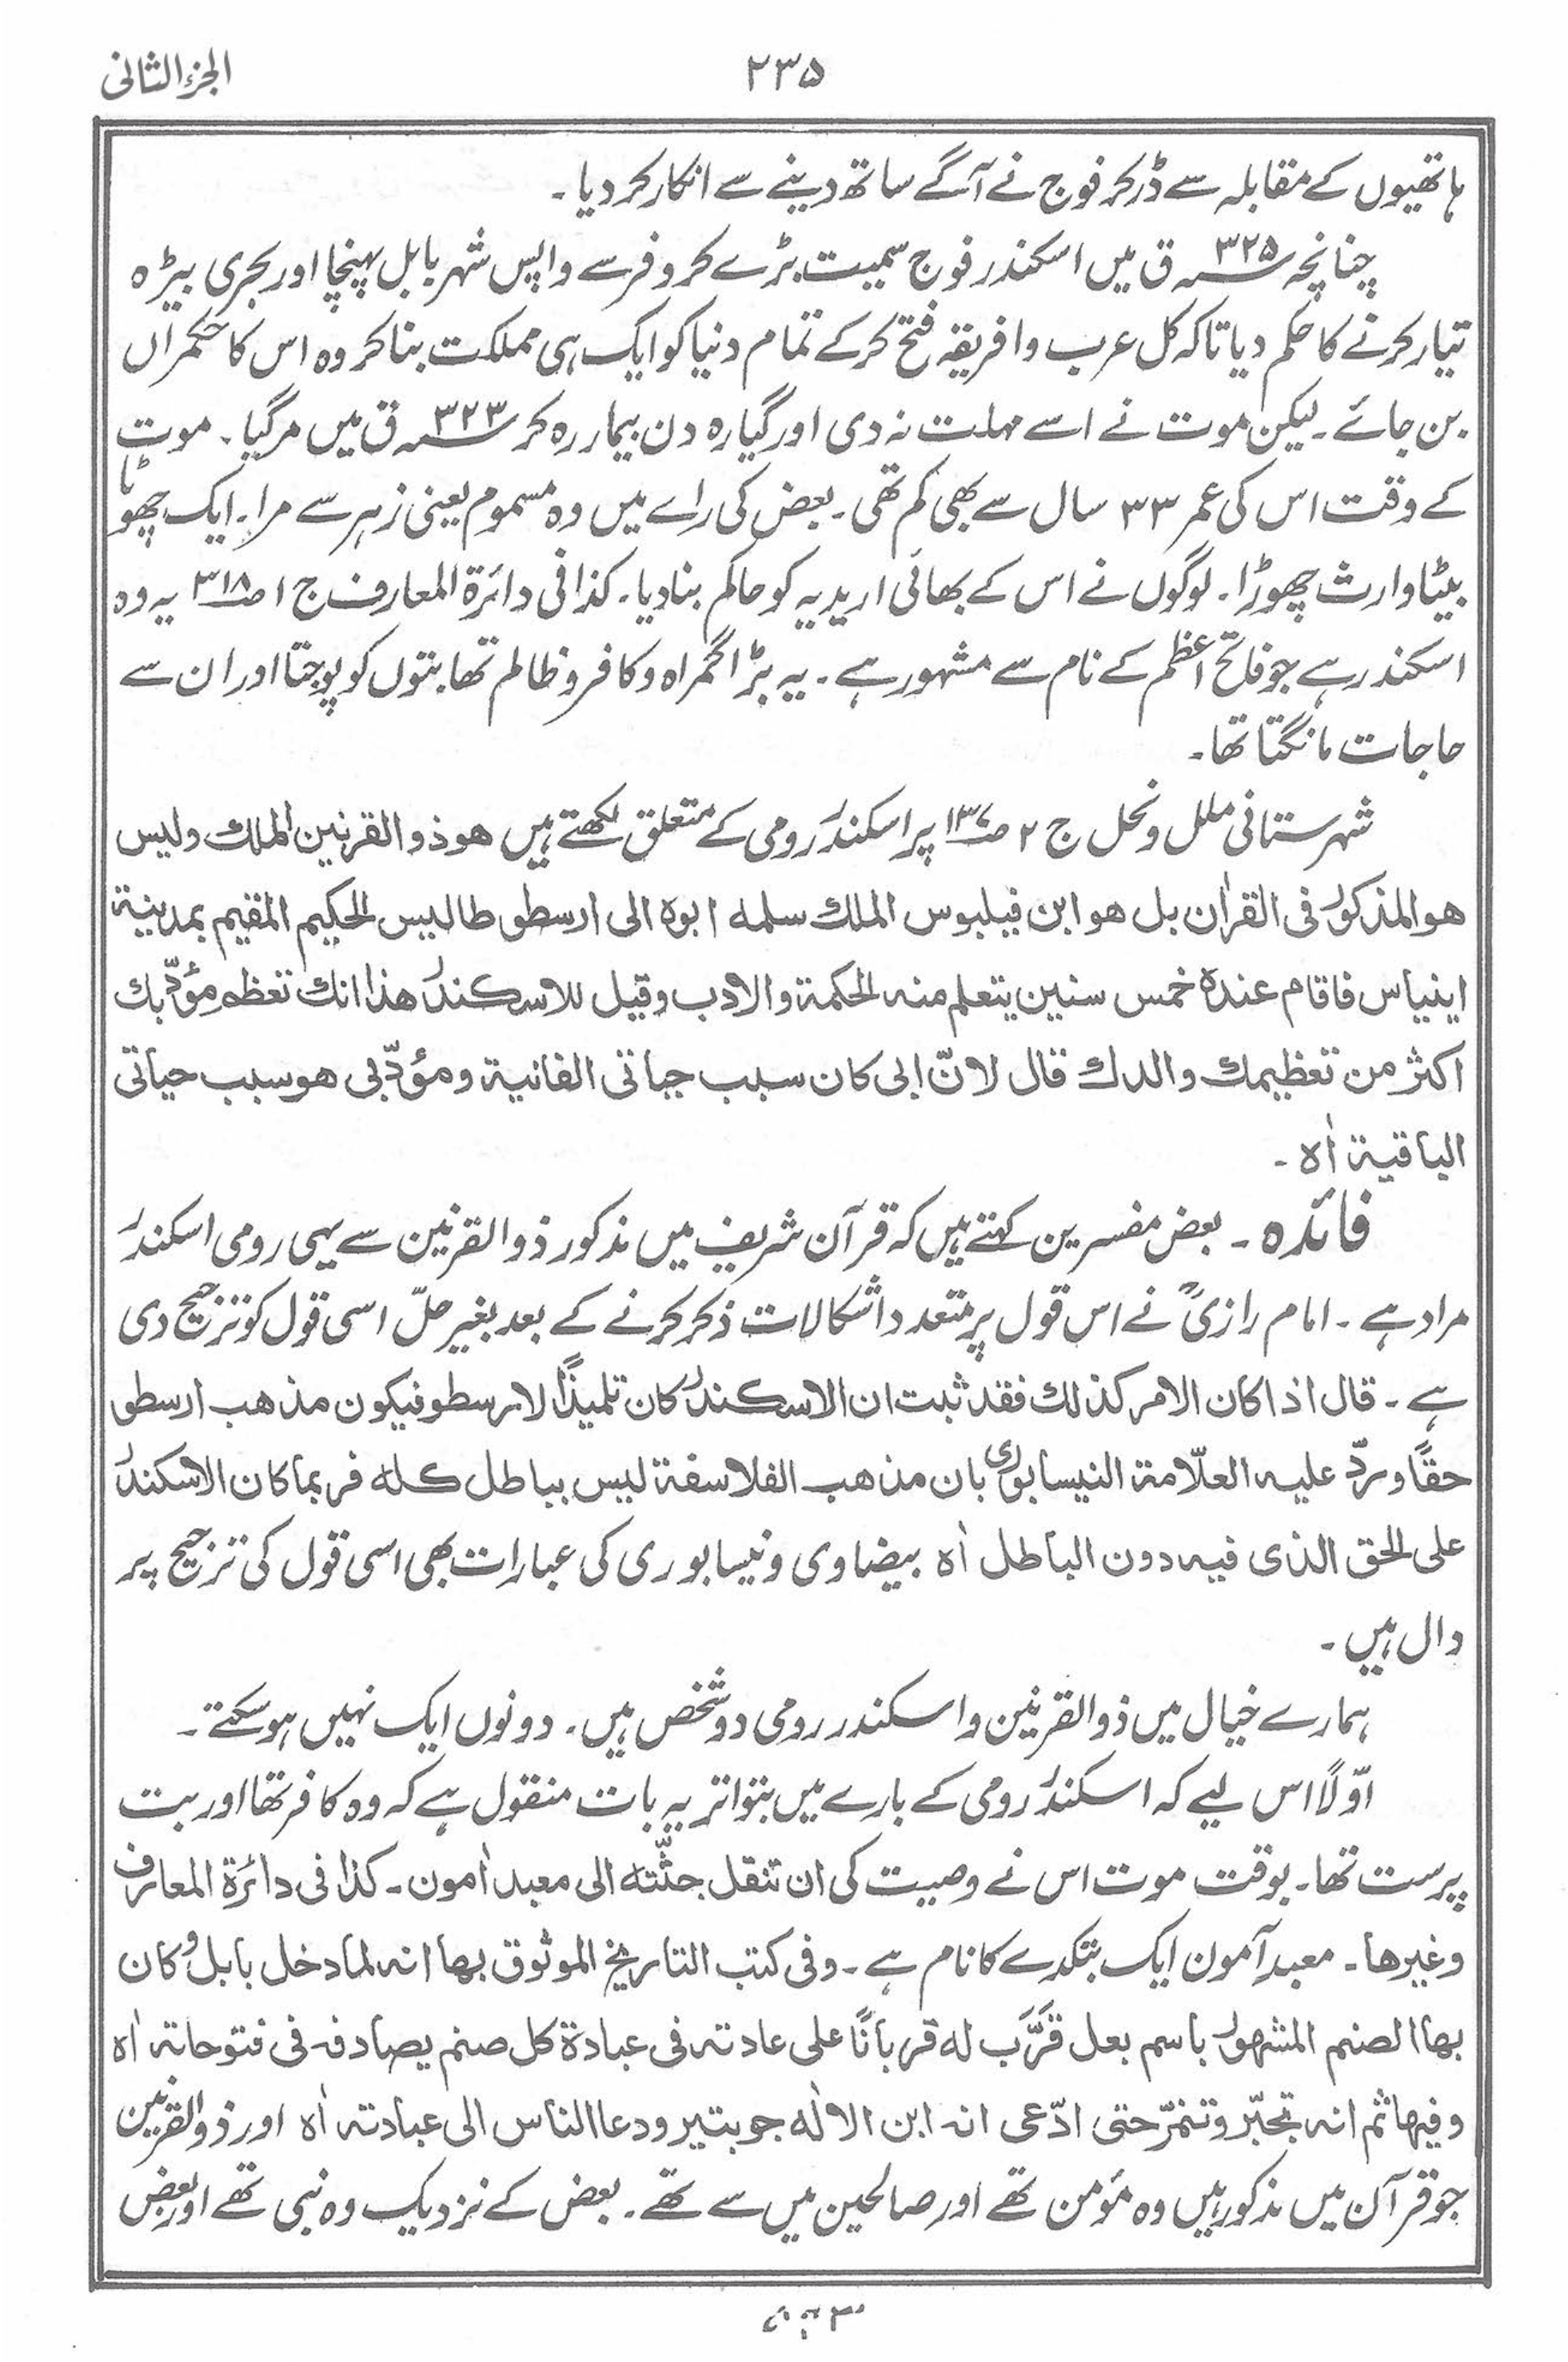 الجزء الثانی
۲۳۵
ہاتھیوں کے مقابلہ سے ڈر کر فوج نے آگے ساتھ دینے سے انکار کر دیا۔
چنانچہ ۳۲۵؁ ق میں اسکندر فوج سمیت بڑے کروفر سے واپس شہر بابل پہنچا اور بحری بیڑہ
تیار کرنے کا حکم دیا تاکہ کل عرب و افریقہ فتح کر کے تمام دنیا کو ایک ہی مملکت بنا کر وہ اس کا حکمراں
بن جائے۔ لیکن موت نے اسے مہلت نہ دی اور گیارہ دن بیمار رہ کر ۳۲۳؁ ق میں مر گیا۔ موت
کے وقت اس کی عمر ۳۳ سال سے بھی کم تھی۔ بعض کی راے میں وہ مسموم یعنی زہر سے مرا۔ ایک چھوٹا
بیٹا وارث چھوڑا۔ لوگوں نے اس کے بھائی اریدیہ کو حاکم بنا دیا۔ کذا فی دائرۃ المعارف ج ۱ ص۳۱۸ یہ وہ
اسکندر ہے جو فاتح اعظم کے نام سے مشہور ہے۔ یہ بڑا گمراہ و کافر و ظالم تھا بتوں کو پوجتا اور ان سے
حاجات مانگتا تھا۔
شہرستانی ملل و نحل ج ۲ ص۱۳۷ پر اسکندر رومی کے متعلق لکھتے ہیں ھو ذو القرنین الملك ولیس
ھو المذکور فی القراٰن بل ھو ابن فیلبوس الملك سلمه ابوہ الی ارسطوطالیس الحکیم المقیم بمدینة
اینیاس فاقام عندہ خمس سنین یتعلم منه الحکمة والادب وقیل للاسکندر ھذا انك تعظم مؤدّبك
اکثر من تعظیمك والدك قال لانّ ابی کان سبب حیاتی الفانیة ومؤدّبی ھو سبب حیاتی
الباقیة اٰہ۔
فائدہ۔ بعض مفسرین کہتے ہیں کہ قرآن شریف میں مذکور ذو القرنین سے یہی رومی اسکندر
مراد ہے۔ امام رازیؒ نے اس قول پر متعدد اشکالات ذکر کرنے کے بعد بغیر حلّ اسی قول کو ترجیح دی
ہے۔ قال اذا کان الامر کذلك فقد ثبت ان الاسکندر کان تلمیذًا لارسطو فیکون مذھب ارسطو
حقًا وردّ علیه العلّامة النیسابوری بان مذھب الفلاسفة لیس بباطل کله فربما کان الاسکندر
علی الحق الذی فیه دون الباطل اٰہ بیضاوی و نیسابوری کی عبارات بھی اسی قول کی ترجیح پر
دال ہیں۔
ہمارے خیال میں ذو القرنین و اسکندر رومی دو شخص ہیں۔ دونوں ایک نہیں ہو سکتے۔
اوّلًا اس لیے کہ اسکندر رومی کے بارے میں بتواتر یہ بات منقول ہے کہ وہ کافر تھا اور بت
پرست تھا۔ بوقت موت اس نے وصیت کی ان تنقل جثّته الی معبد اٰمون۔ کذا فی دائرۃ المعارف
وغیرھا۔ معبدِ آمون ایک بتکدے کا نام ہے۔ وفی کتب التاریخ الموثوق بھا انه لما دخل بابل و کان
بھا الصنم المشھور باسم بعل قَرَّب له قربانًا علی عادته فی عبادة کل صنم یصادفه فی فتوحاته اٰہ
وفیھا ثم انه تجبّر وتنمرّ حتی ادّعی انه ابن الالٰه جوبتیر ودعا الناس الی عبادته اٰہ اور ذو القرنین
جو قرآن میں مذکور ہیں وہ مؤمن تھے اور صالحین میں سے تھے۔ بعض کے نزدیک وہ نبی تھے اور بعض